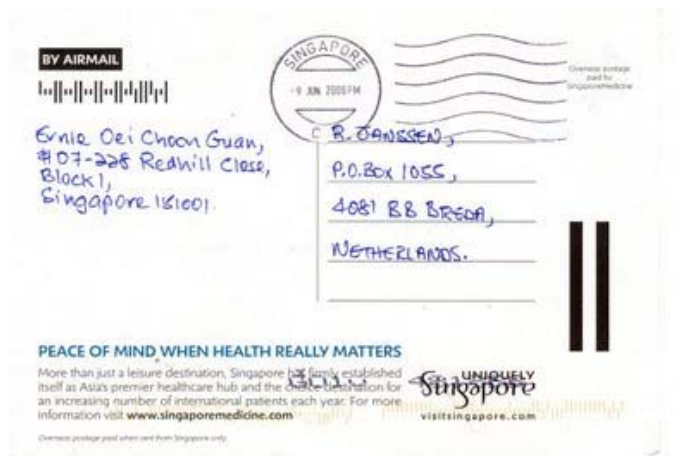 BY AIRMAIL
SINGAPORE
-9 JUN 2008 PM
C
Overseas postage
paid by
Singaporemedicine
Ernie Oei Choon Guan,
#07-228 Redhill Close,
Block 1,
Singapore 151001.
B. JANSSEN,
P.O.BOX 1055,
4081 BB BREDA,
NETHERLANDS.
PEACE OF MIND WHEN HEALTH REALLY MATTERS
More than just a leisure destination, Singapore has firmly established
itself as Asia's premier healthcare hub and the choice destination for
an increasing number of international patients each year. For more
information visit www.singaporemedicine.com
Overseas postage paid when sent from Singapore only.
UNIQUELY
Singapore
visitsingapore.com